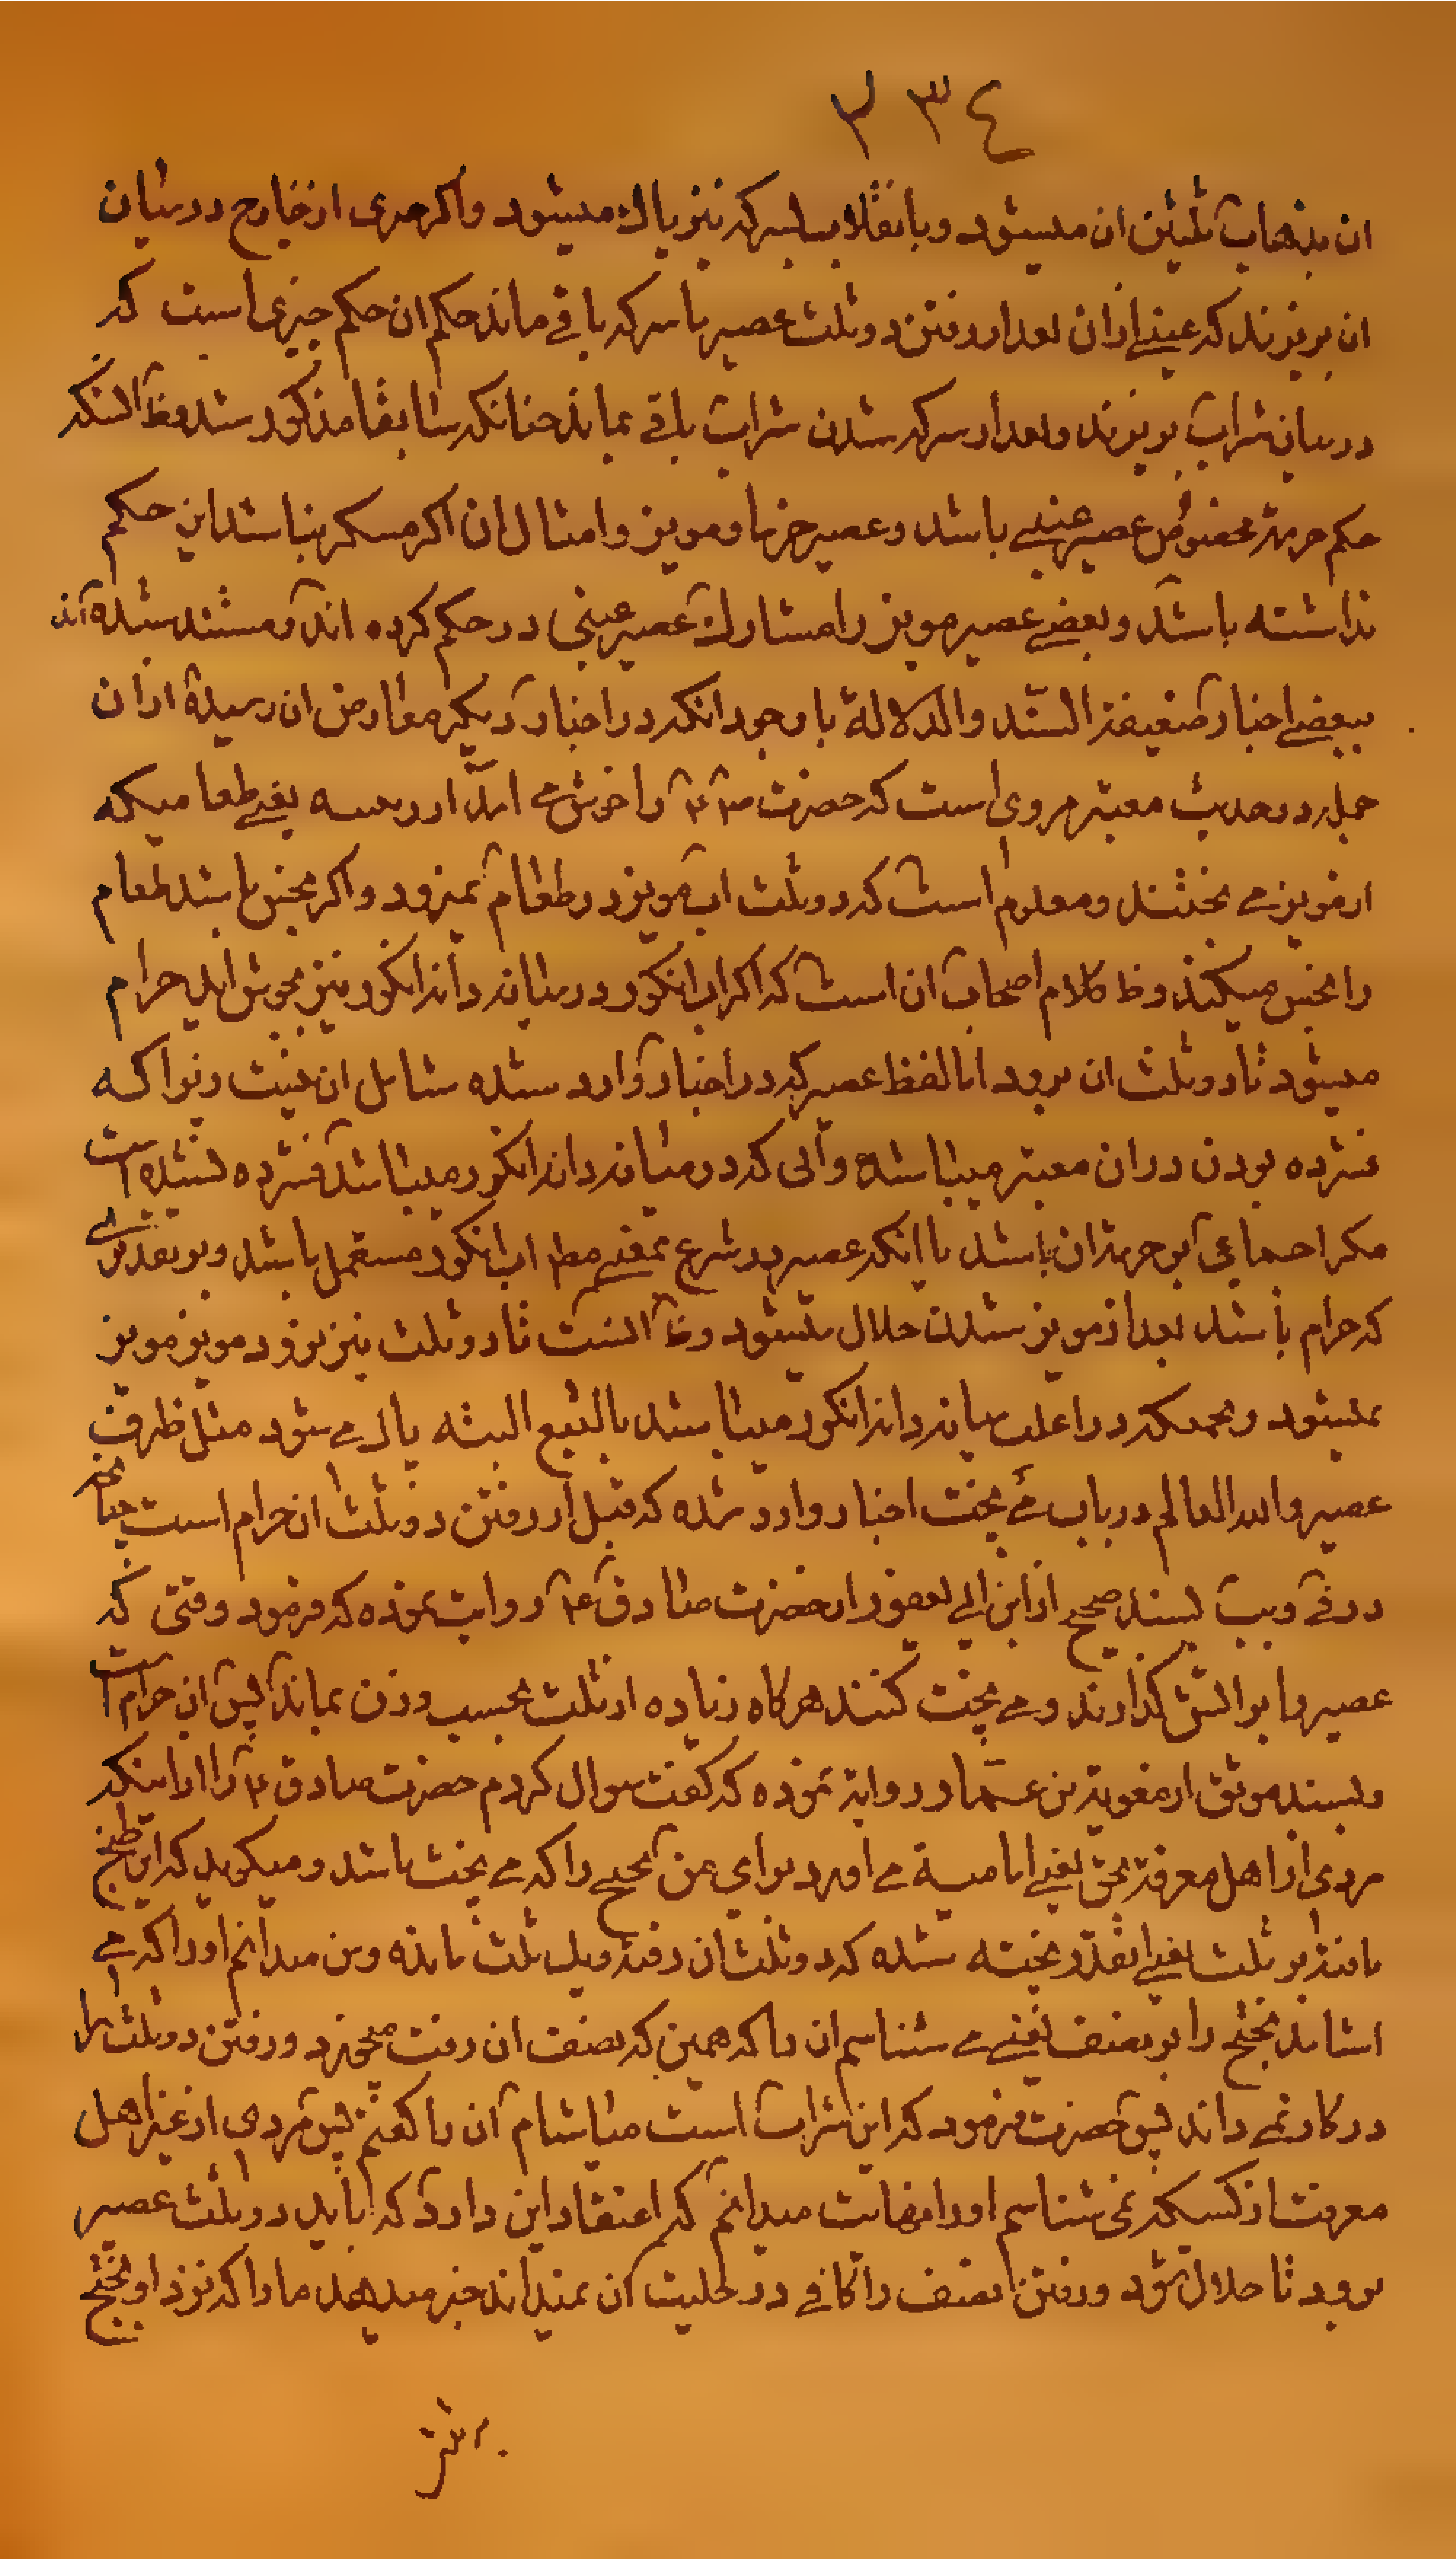 ۲۳٤
ان بذهاب ثلثین ان میشود و بانقلاب بسرکه نیز پاک میشود واکر جری از خارج درمیان
ان بریزند که عینے ازان بعد از رفتن دو ثلث عصیر یا سرکه باقے ماند حکم ان حکم چیزی است که
درمیان شراب بریزند و بعد از سرکه شدن شراب باقے بماند چنانکه سابقا مذکور شد وظ انستکه
حکم حرمة مخصوص عصیر عنبے باشد و عصیر خرما و مویز و امثال ان اکر مسکر نباشد این حکم
نداشته باشد و بعضے عصیر مویز را مشارک عصیر عنبی در حکم کرده اند و مستند شده اند
ببعضے اخبار ضعیفة السّند والدلالة با وجود انکه در اخبار دیکر معارض ان رسیده ازان
جمله در حدیث معتبر مروی است که حضرت را خوش مے امد از یعنے طعامیکه
از مویز مے پختند و معلوم است که دو ثلث اب مویز در طعام نمیرود و اکر نجس باشد طعام
را نجس میکند وظ کلام اصحاب ان است که اکر اب انکور درمیان دانه انکور نیز بجوش اید حرام
میشود تا دو ثلث ان برود اما لفظ عصیر که در اخبار وارد شده شامل ان نیست زیرا که
فشرده بودن دران معتبر میباشد و آبی که درمیان دانه انکور میباشد فشرده نشده است
مکر اجماعی بر حرمة ان باشد یا انکه عصیر در شرع بمعنے مطلق اب انکور مستعمل باشد و بر تقدیری
که حرام باشد بعد از مویز شدن حلال میشود وظ انست تا دو ثلث نیز نرود مویز مویز
نمیشود و نجمیکه در اغلب میان دانه انکور میباشد بالتبع البته پاک مے شود مثل ظرف
عصیر والله العالم در باب مے پخت اخبار وارد شده که قبل از رفتن دو ثلث ان حرام است چنانچه
در فی و یب بسند صحیح از ابن ابی یعفور از حضرت صادق ع روایت نموده که فرمود وقتی که
عصیر را بر اتش کذارند و مے پخت کنند هرکاه زیاده از ثلث بحسب وزن بماند پس ان حرام است
و بسند موثق از معویة بن عمّار روایة نموده که کفت سوال کردم حضرت صادق ع را از اینکه
مردی از اهل معرفة بحق یعنے امامیة مے اورد برای من بختج را که مے پخت باشد و میکوید که این طبخ
یافته بر ثلث یعنے انقدر پخته شده که دو ثلث ان رفته و یک ثلث مانده و من میدانم اورا که مے
اشامد بختج را بر نصف یعنے مے شناسم ان را که همین که نصف ان رفت میخورد و رفتن دو ثلث را
در کار نمے داند پس حضرت فرمود که این شراب است میاشام آن را کفتم پس مردی از غیر اهل
معرفت از کسیکه نمی شناسم اورا نهایت میدانم که اعتقاد این دارد که باید دو ثلث عصیر
برود تا حلال شود و رفتن نصف را کافے در حلیت ان نمیداند خبر میدهد ما را که نزد او بختج